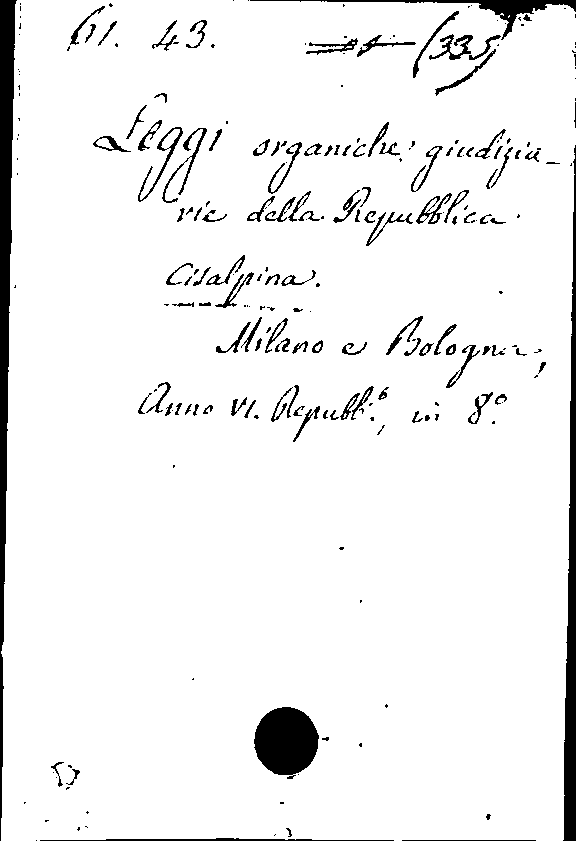 61. 43. (335)
Leggi organiche giudizia-
rie della Repubblica
Cisalpina.
Milano e Bologna,
Anno VI. Repubb.º, in 8.º